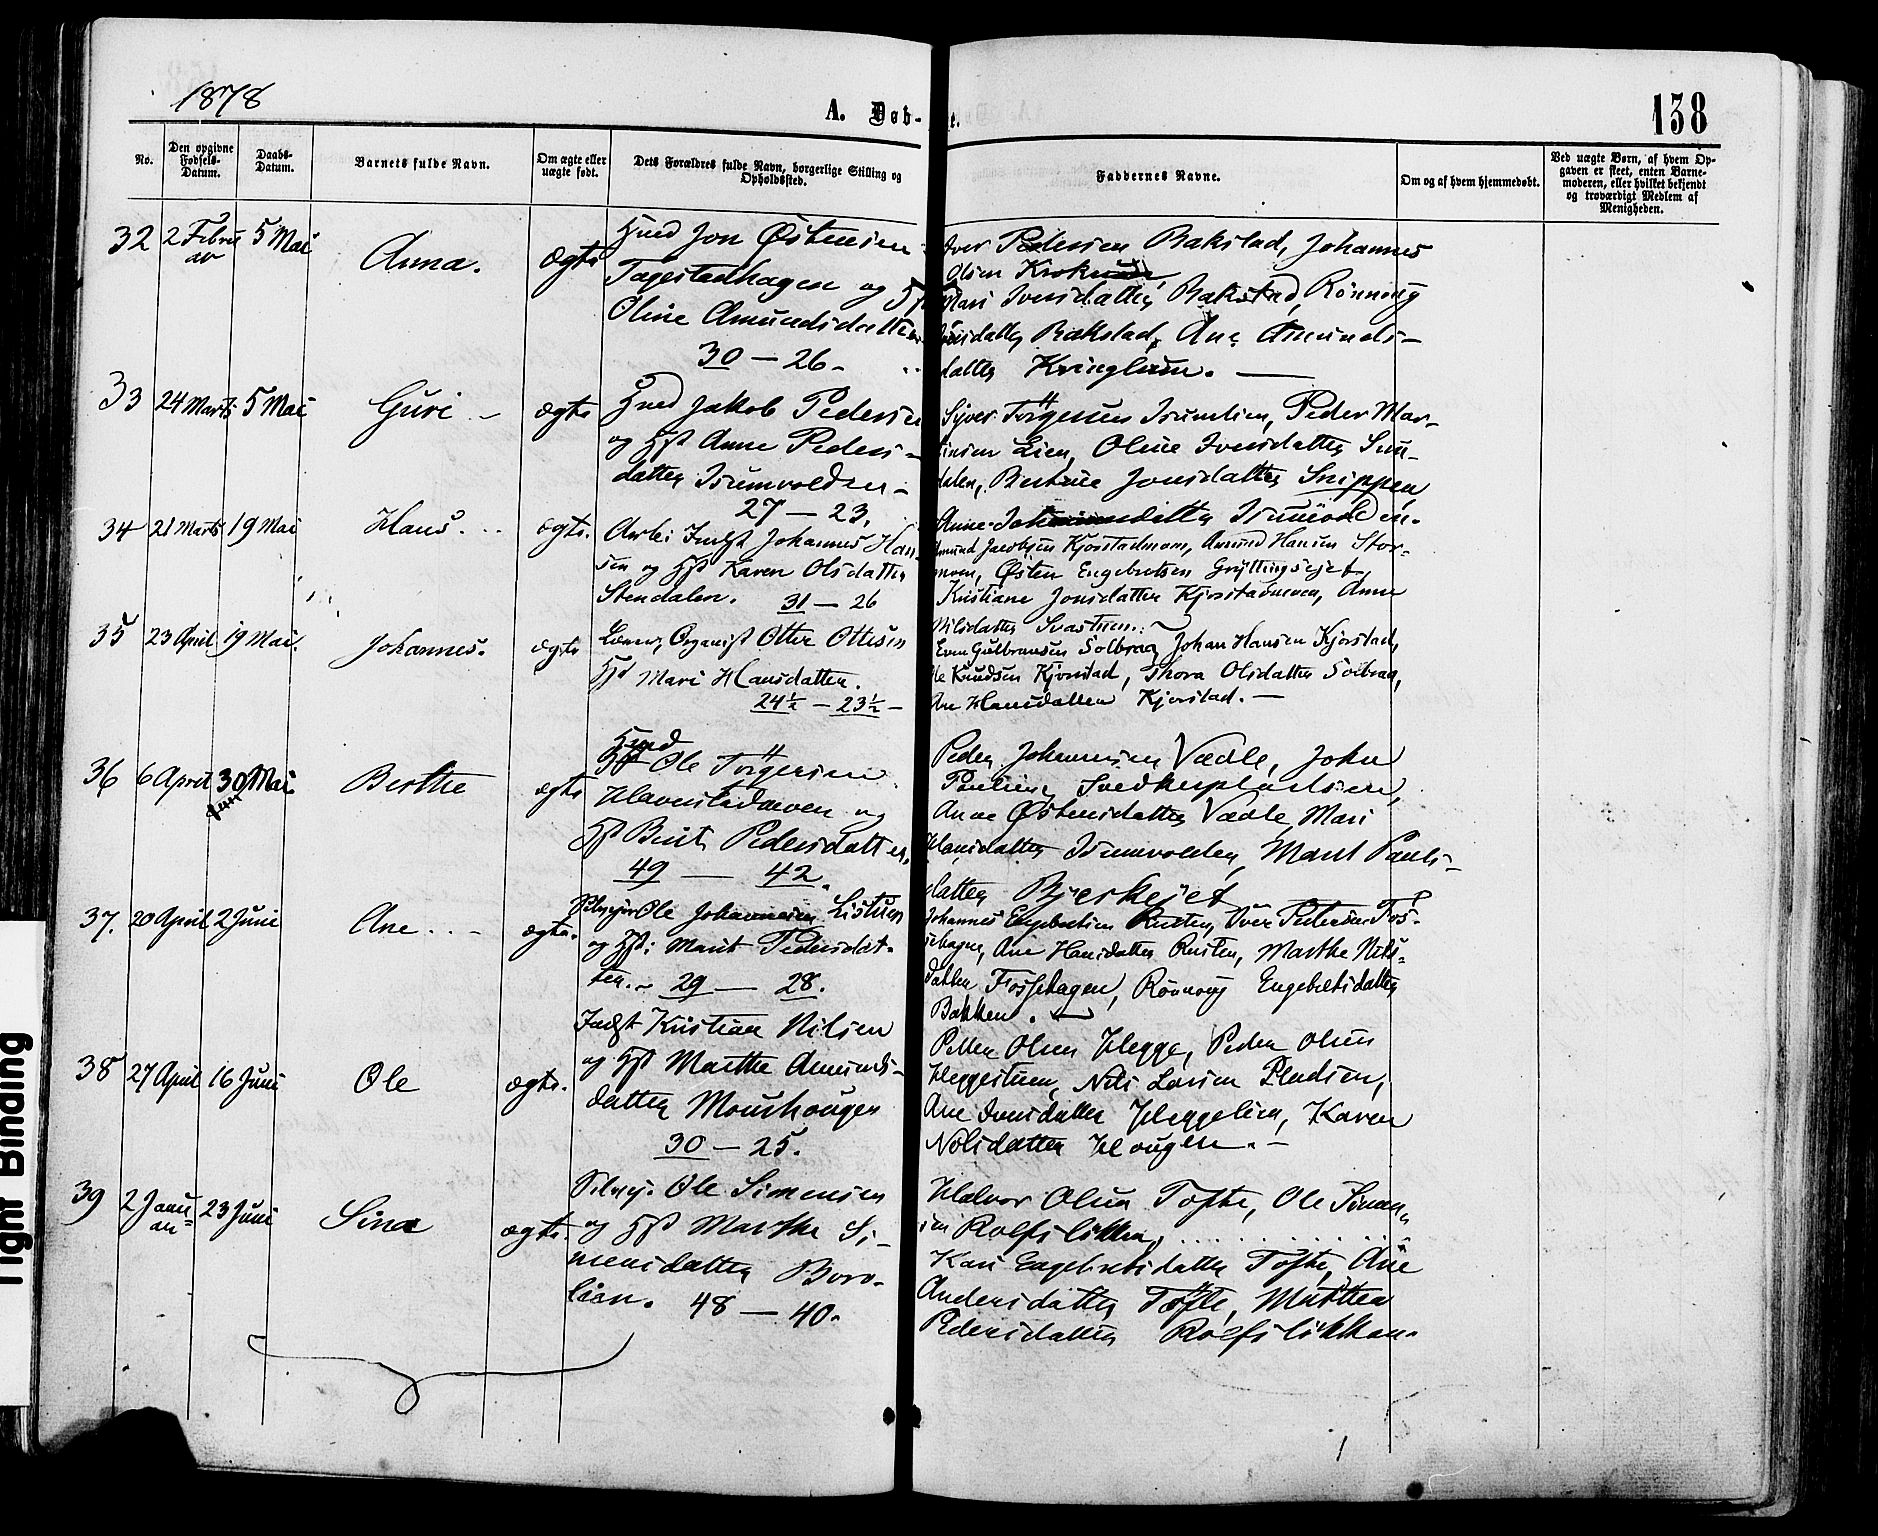 1878
A. Døb-
te.
138
No.
Den opgivne Fødsels-Datum.
Daabs-Datum.
Barnets fulde Navn.
Om ægte eller uægte født.
Dets Forældres fulde Navn, borgerlige Stilling og Opholdssted.
Faddernes Navne.
Om og af hvem hjemmedøbt.
Ved uægte Børn, af hvem Op-
gaven er skeet, enten Barne-
moderen, eller hvilket bekjendt
og troværdigt Medlem af
Menigheden.
32 2 Febru 5 Mai
ar
Anna.
ægte
Jon Østensen
Tagestadhagen og
Oline Amundsdatter
30 — 26.
Iver Pedersen Bakstad, Johannes
Olsen
Mari Iversdatter Bakstad, Rønnoug
Bakstad, Ane Amunds-
datter Kringlum. —
33 24 Marts 5 Mai
Guri
ægte
Jakob Pedersen
og Anne Peders-
datter Isumvolden
27 — 23.
Syver Isumlien, Peder Mar-
Lien, Oline Iversdatter Sun-
dalen, Jonsdatter Snippen,
Anne datter Isumvolden.
34 21 Marts 19 Mai
Hans.
ægte.
Johannes Han-
sen og Karen Olsdatter
Stendalen. 31 — 26
Amund Jacobsen Kjorstadmoen, Amund Hansen Stor-
moen, Østen Engebretsen Gryttingsejet,
Kristiane Jonsdatter Kjorstadmoen, Anne
Nilsdatter
35 23 April 19 Mai.
Johannes.
ægte
Organist Otter Ottesen
Mari Hansdatter.
24½ — 23½ —
Even Gulbransen Solbraa, Johan Hansen Kjorstad,
Ole Knudsen Kjorstad, Thora Olsdatter Solbraa,
Ane Hansdatter Kjorstad. —
36 6 April 30 Mai
Berthe
ægte
Ole
og
Brit Pedersdatter,
49 — 42.
Peder Johannesen Vædle, John
Anne Østensdatter Vædle, Mari
Hansdatter Isumvolden, Marit Pauls-
datter
37. 20 April 2 Juni
Ane
ægte.
Ole Johannesen
og Marit Pedersdat-
ter. 29 — 28.
Johannes Engebretsen Rusten, Iver Pedersen Fos-
sehagen, Ane Hansdatter Rusten, Marthe Nils-
datter Fossehagen, Rønnoug Engebretsdatter
Bakken.
38 27 April 16 Juni
Ole
ægte.
Indst Kristian Nilsen
og Marthe Amunds-
datter
30 — 25.
Petter Olsen Hegge, Peder Olsen
Heggestuen, Nils Larsen Pladsen,
Ane Iversdatter Heggelien, Karen
Nilsdatter Hougen. —
39 2 Janu 23 Juni
ar
Sina
ægte.
Ole Simensen
og Marthe Si-
mensdatter Boro-
lien. 48 — 40.
Halvor Olsen Tofte, Ole Simen-
sen Rolfsløkken,
Kari Engebretsdatter Tofte, Ane
Andersdatter Tofte,
Pedersdatter Rolfsløkken.
Tight Binding